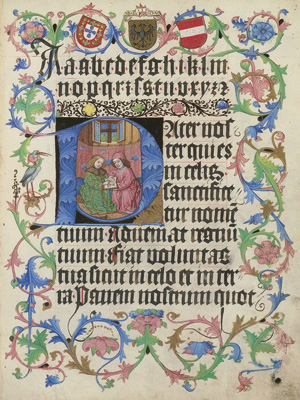 A a b c d e f g h i k l m
n o p q r ſ s t u x y z
PAter noſ
ter qui es
in celis
sanctifice
tur nomē
tuum Adueniat regnū
tuum Fiat voluntas
tua sicut in celo et in ter
ra Panem noſtrum quot